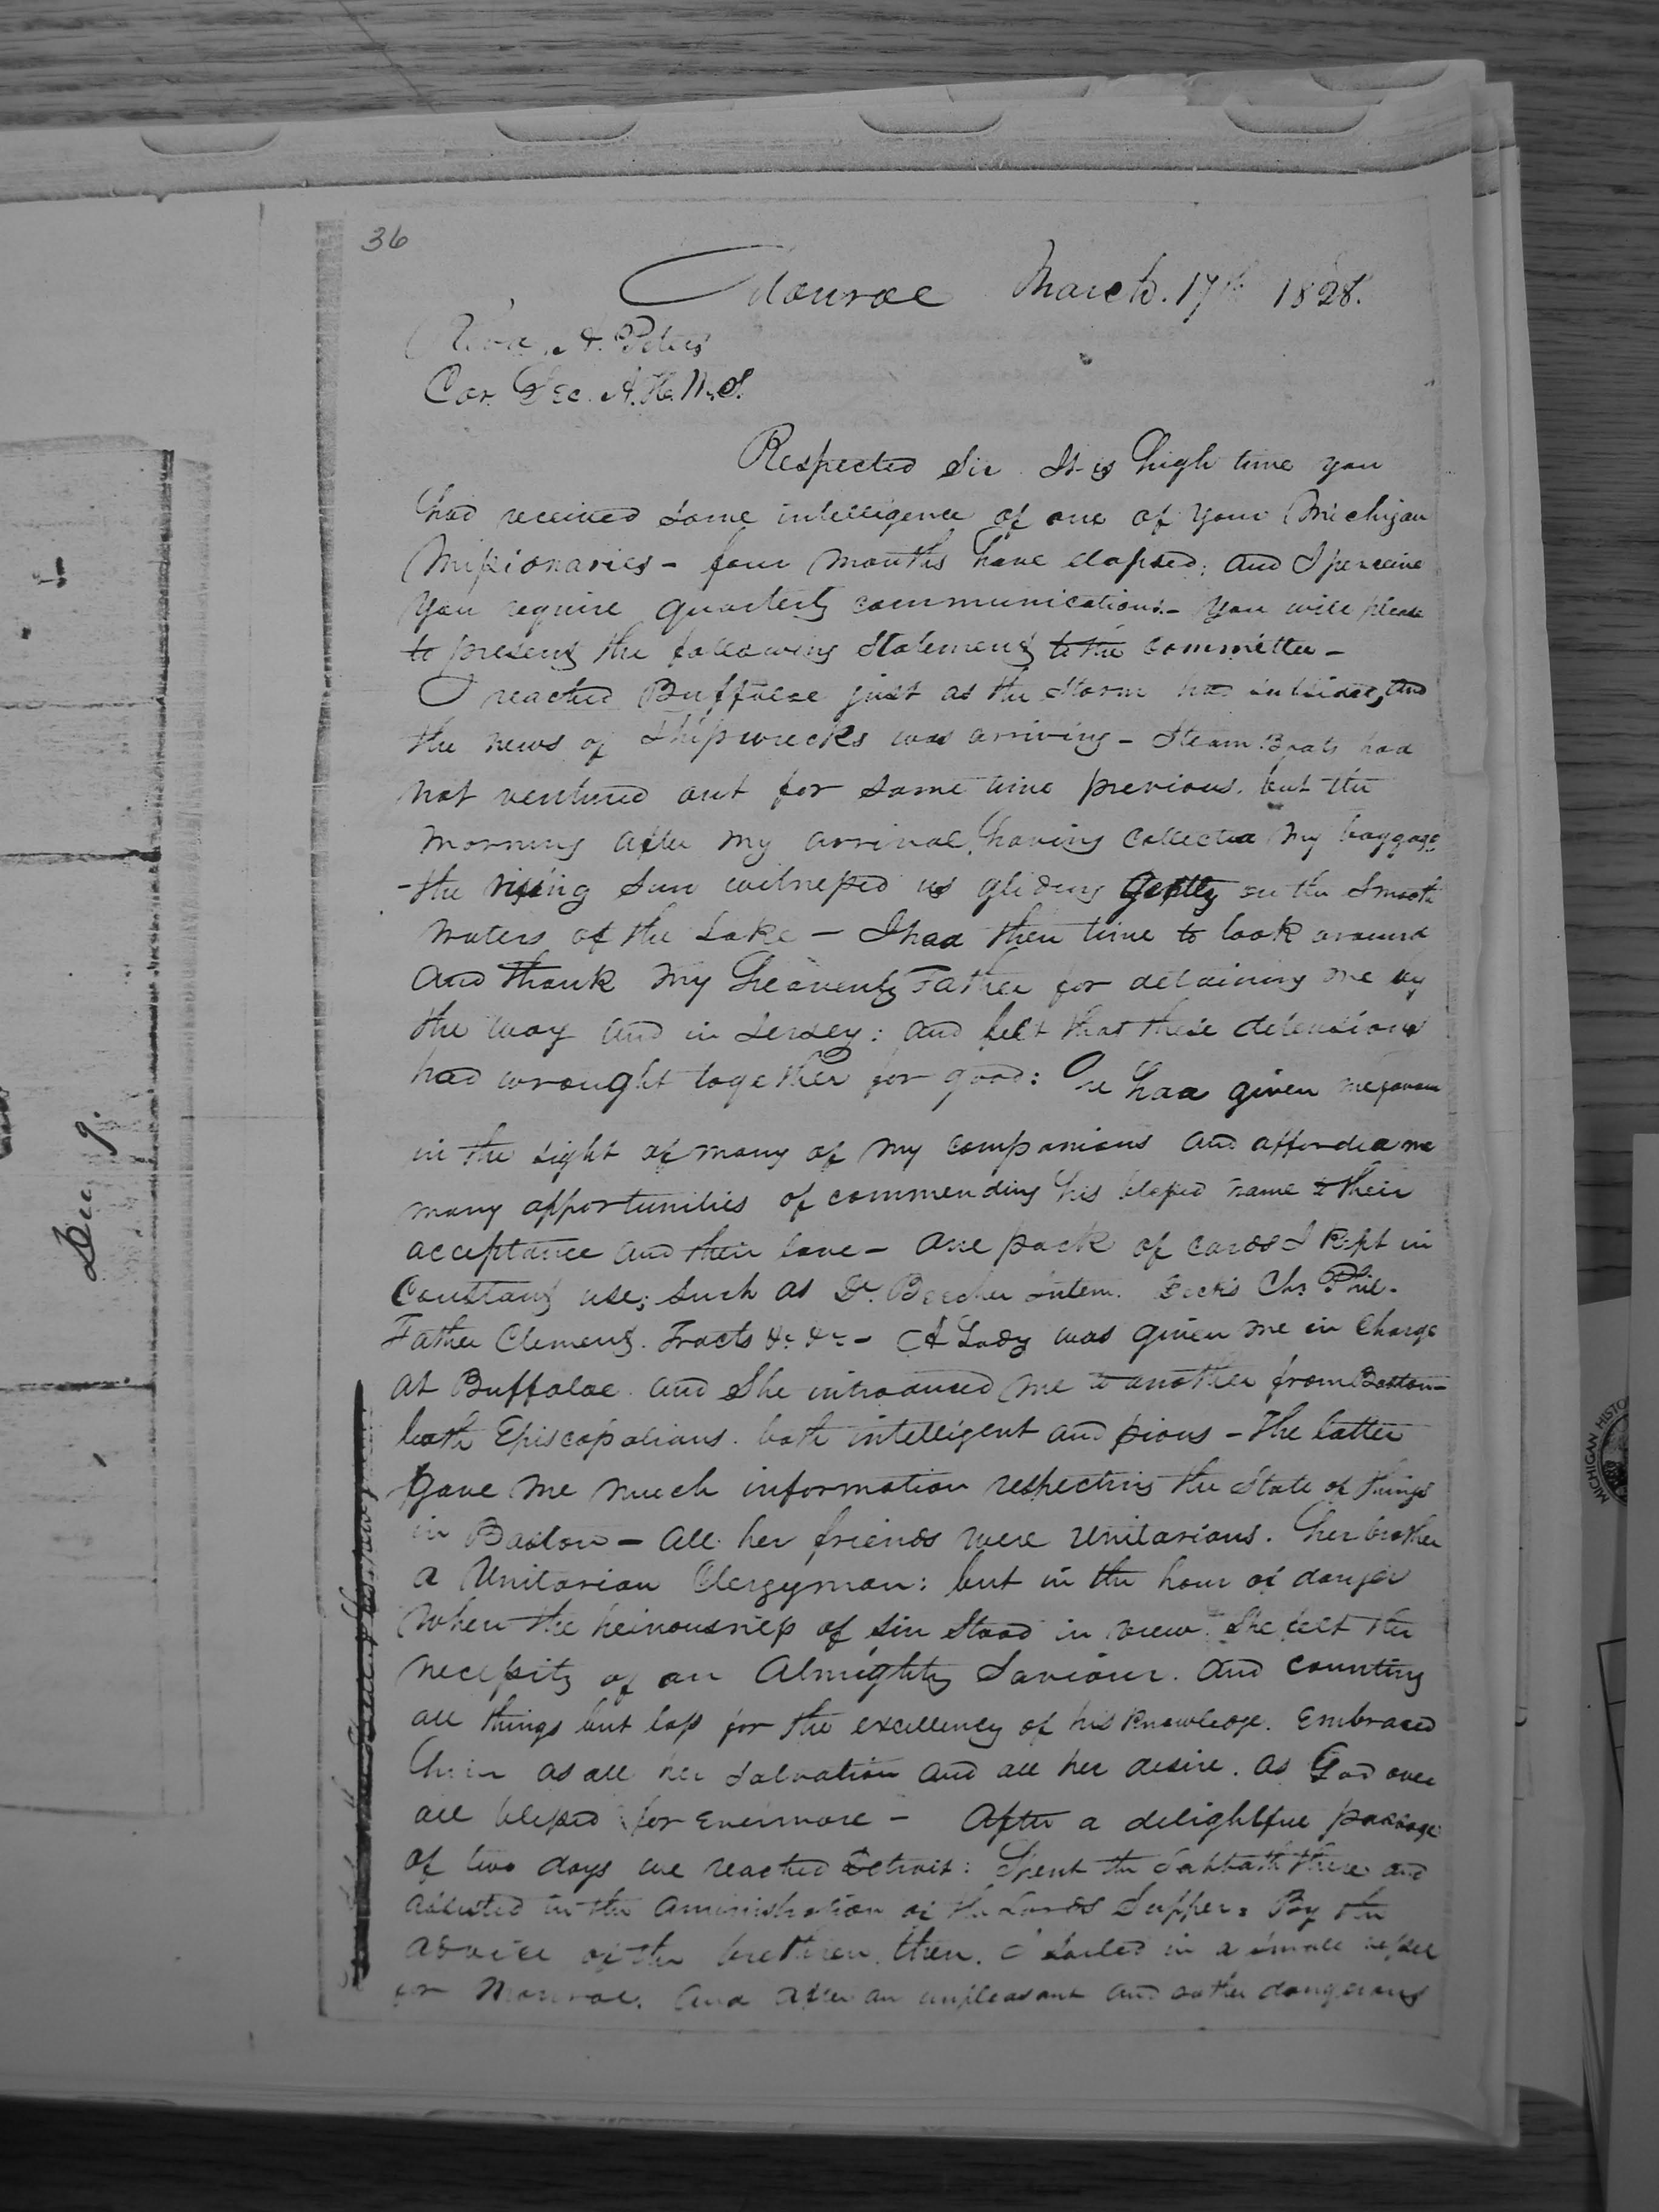 36
Monroe March. 17th 1828.
Revd. A. Peters
Cor. Sec. A. H. M. S.
Respected Sir It is high time you
had received some intelligence of one of your Michigan
Missionaries - four months have elapsed; and I perceive
you require quarterly communications. - You will please
to present the following statement to the committee -
I reached Buffaloe just as the storm had subsided, and
the news of Shipwrecks was arriving - Steam Boats had
not ventured out for some time previous. but the
morning after my arrival, having collected my baggage
- the rising Sun witnessed us gliding gently on the Smooth
waters of the Lake - I had then time to look around
and thank my Heavenly Father for detaining me by
the way and in Jersey: and felt that these detensions
had wrought together for good: He had given me favour
in the sight of many of my companions and afforded me
many opportunities of commending his blessed name to their
acceptance and their love - One pack of cards I kept in
Constant use; such as Dr. Beecher Intem. Dick's Chr. Phil.
Father Clement. Tracts &c. &c - A Lady was given me in Charge
at Buffaloe. and She introduced me to another from Boston -
both Episcopalians. both intelligent and pious - The latter
gave me much information respecting the State of things
in Boston - all her friends were Unitarians. her brother
a Unitarian Clergyman: but in the hour of danger
when the heinousness of sin stood in view. She felt the
necessity of an Almighty Saviour. and counting
all things but loss for the excellency of his knowledge. Embraced
as all her salvation and all her desire. as God over
all blessed for Evermore - After a delightful passage
of two days we reached Detroit: Spent the Sabbath there and
assisted in the aministration of the Lords Supper: By the
advice of the brethren then. I sailed in a small vessel
for Monroe. and after an unpleasant and rather dangerous
Dec. 9.
MICHIGAN HISTO